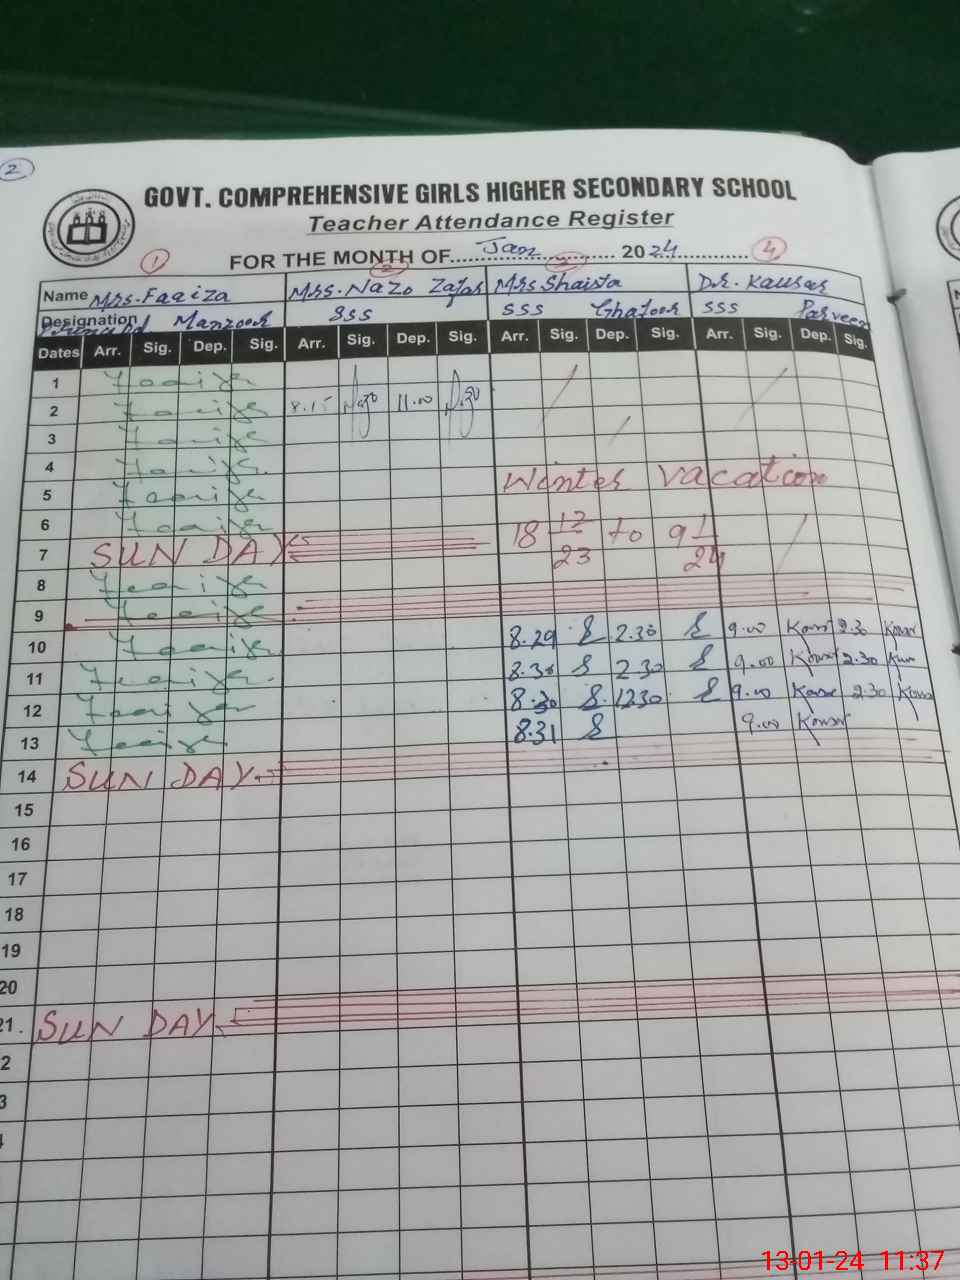 2
GOVT. COMPREHENSIVE GIRLS HIGHER SECONDARY SCHOOL
Teacher Attendance Register
FOR THE MONTH OF Jan 2024
1 2 3 4
Name Mrs. Faaiza Mrs. Nazo Zafar Mrs Shaista Dr. Kausar
Designation Manzoor SSS SSS Ghafoor SSS Parveen
Dates Arr. Sig. Dep. Sig. Arr. Sig. Dep. Sig. Arr. Sig. Dep. Sig. Arr. Sig. Dep. Sig.
1 Faaiza
2 Faaiza 8.15 Nazo 11.00 Nazo
3 Faaiza
4 Faaiza
5 Faaiza Winter vacation
6 Faaiza 18 12/23 to 9 1/24
7 SUNDAY
8 Faaiza
9 Faaiza
10 Faaiza 8.29 S 2.30 S 9.00 Kausar 2.30 Kausar
11 Faaiza 8.30 S 2.30 S 9.00 Kausar 2.30
12 Faaiza 8.30 S 1230 S 9.00 Kausar 2.30 Kausar
13 Faaiza 8.31 S 9.00 Kausar
14 SUNDAY
15
16
17
18
19
20
21. SUNDAY
2
3
13-01-24 11:37